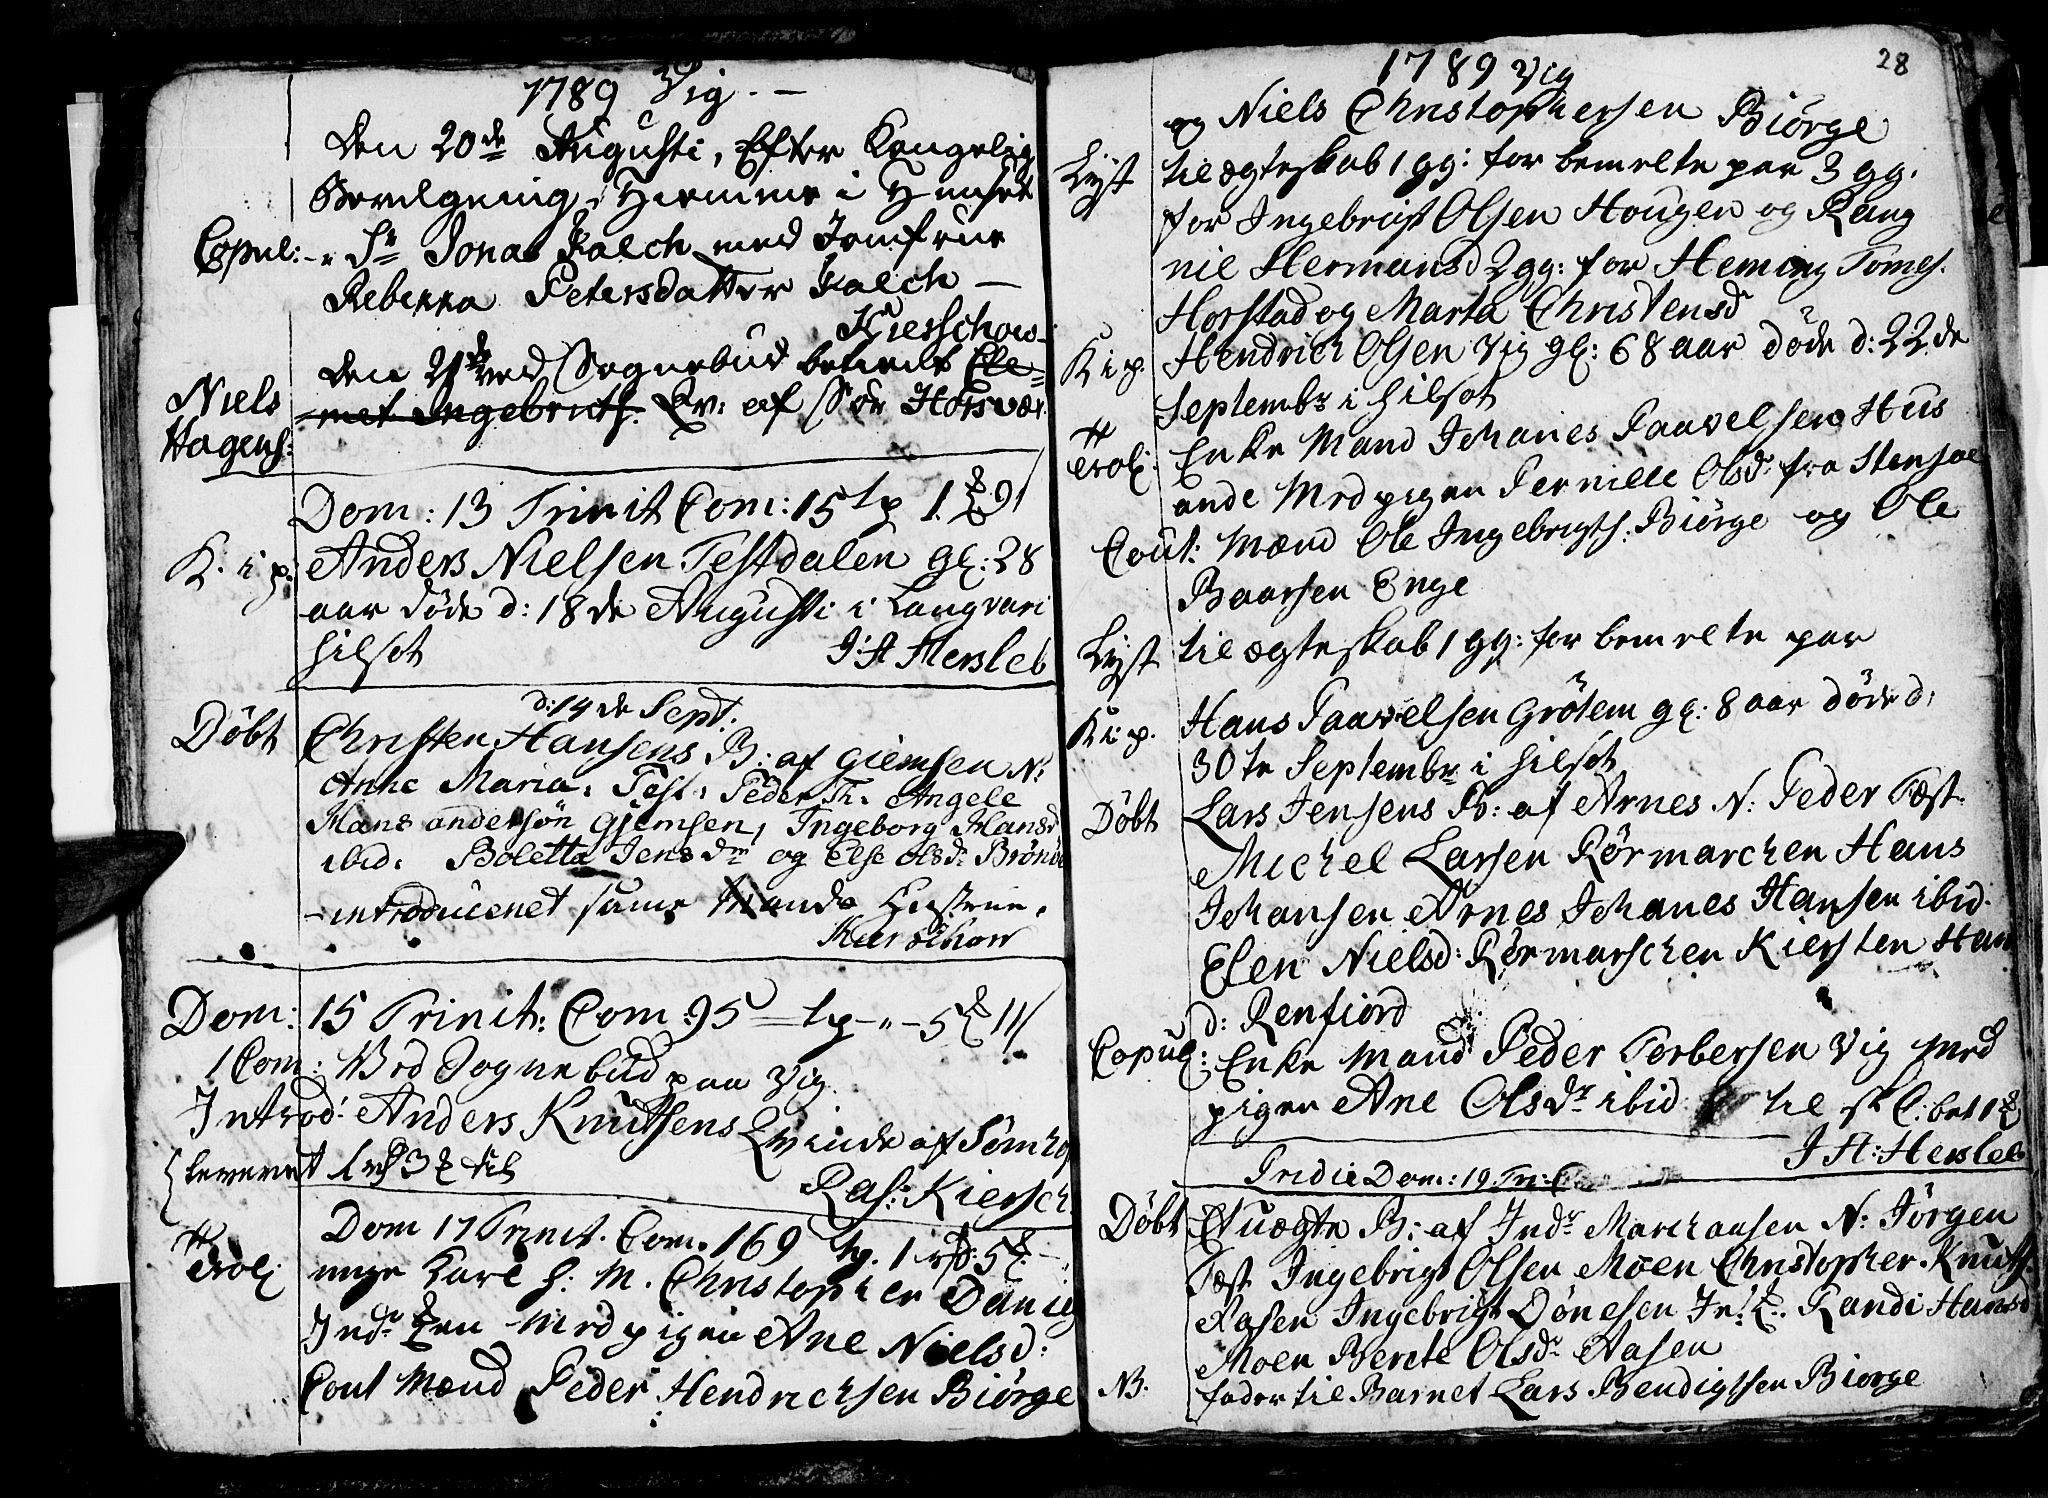 1789 Vig. -
Den 20de Augusti, Efter Kongelig
Bevilgning, Hiemme i Huuset
Copul: - Sr Jonas Falch med Jomfrue
Rebekka Petersdatter Falch -
Kierschow
Den 21de ved Sognebud betient Cle-
Niels met Ingebriths. Qv: af Sør Horsvær.
Hagens:
Dom: 13 Trinit Com: 15
K. i p. Anders Nielsen Testdalen gl: 28
aar døde d: 18de Augusti i Langvari
Hilsot J: A Hersleb
d: 14de Sept.
Døbt Christen Hansens B: af Giemsen N:
Anne Maria. Test: Peder Angele
Hans andersøn Gjemsen, Ingeborg Hansd
ibid. Boletta Jensdr og Else olsdr Brønø
- introducenet samme Mands Hustrue.
Kierschow
Dom: 15 Trinit: Com: 95
1 Com: Ved Sognebud paa Vig.
Introd: Anders Knutsens Qvinde af Sømhof
leveret
Ras: Kiersch.
Dom 17 Trinit. Com. 169
Trol: unge Karl H: M. Christopher Daniel
Indr med pigen Ane Nielsd:
Cout Mænd Peder Hendrichsen Biørge
28
1789 Vig
og Niels Christophersen Biørge
Lyst til ægteskab 1 gg: for bemelte par 3 gg.
for Ingebrigt Olsen Hougen og Rang
nil Hermansd 2 gg: for Heming Tomes.
Horstad og Marta Christensdr
K i p. Hendrich Olsen Vig gl: 68 aar døde d: 22de
Septembr i Hilsot
Trol: Enke Mand Johanes Paavelsen Hus
ande Med pigen Pernille Olsdr fra
Cout: Mænd Ole Ingebrigts: Biørge og Ole
Baarsen Enge
Lyst til ægteskab 1 gg: for bemelte par
K i p. Hans Paavelsen Grøtem gl: 8 aar døde d:
30te Septembr i Hilsot
Døbt Lars Jensens B: af Arnes N: Peder Test.
Michel Larsen Rørmarchen Hans
Johansen Arnes Johanes Hansen ibid.
Elen Nielsd: Rørmarschen Kiersten Han
d: Renfiord
Copul: Enke Mand Peder Torbersen Vig Med
pigen Ane Olsdr ibid til
J A: Hersleb
Pridie Dom: 19 Tri:
Døbt Et uægte B: af Indr Marchausen N: Jørgen
Test Ingebrigt Olsen Moen Christopher Knuts.
Aasen Ingebrigt Dønesen Randi Hansd
Moen Berete Olsdr Aasen
NB: fader til Barnet Lars Bendigtsen Biørge